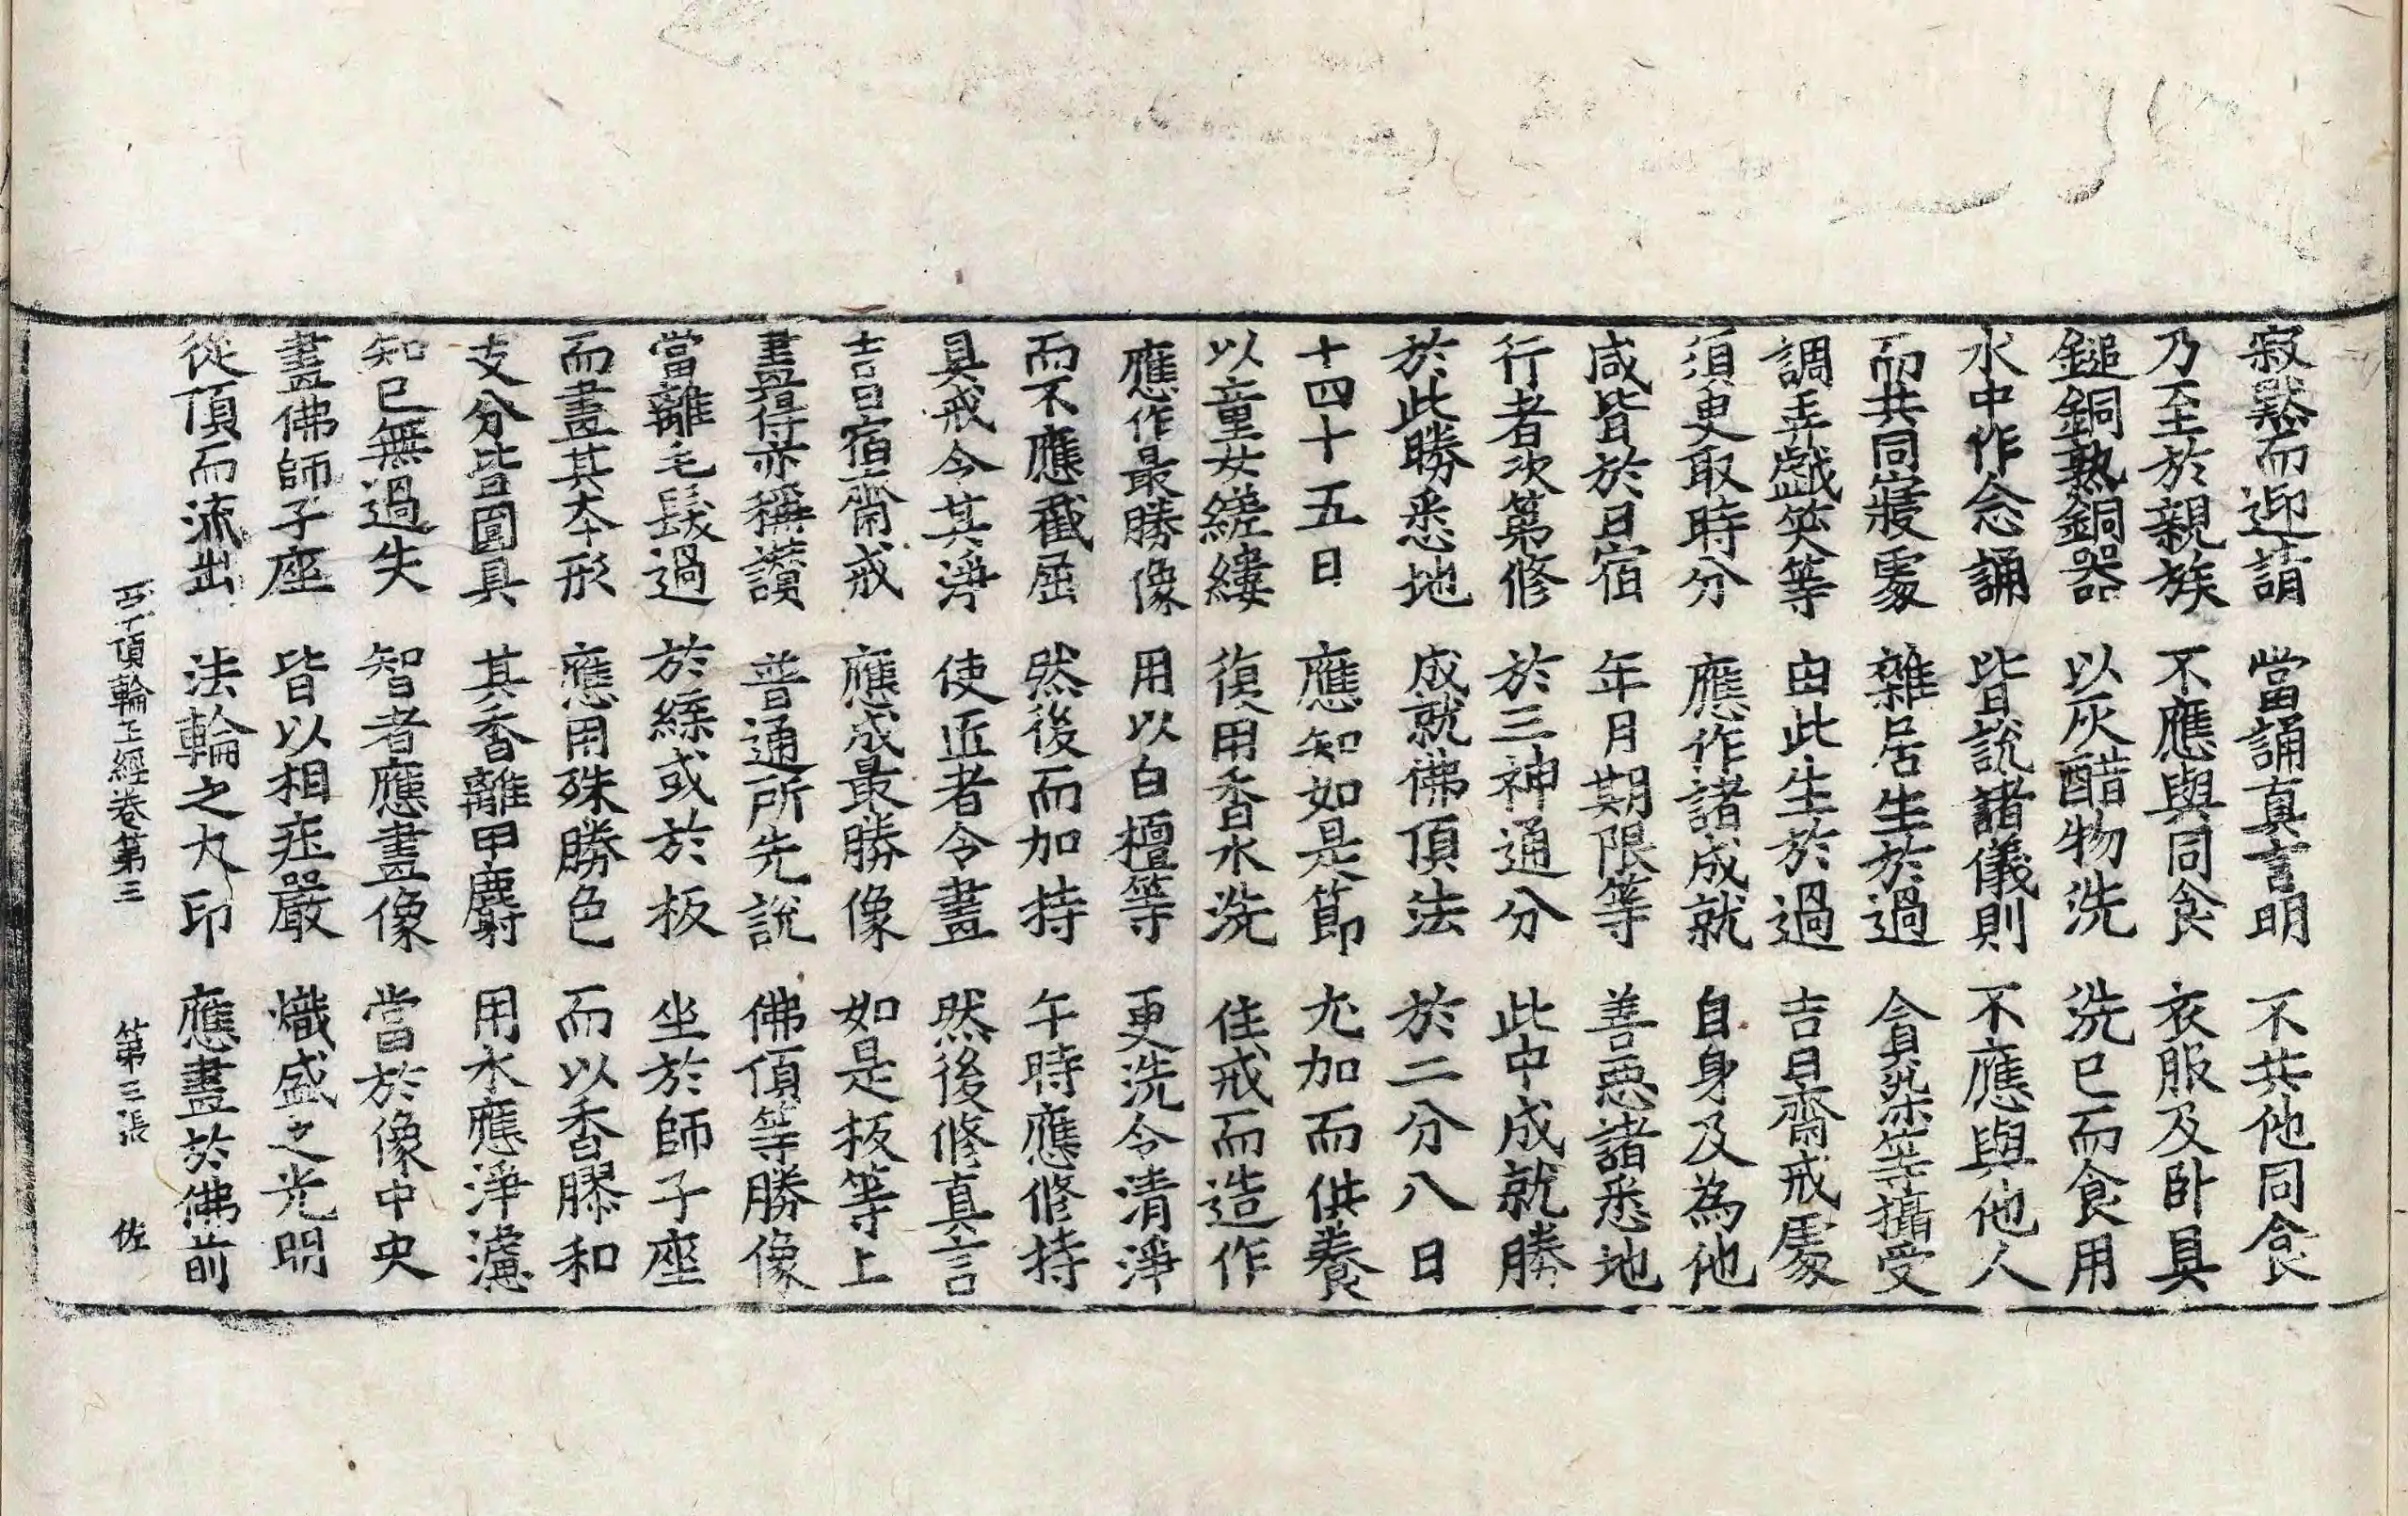 寂默而迎請 當誦真言明 不共他同食
乃至於親族 不應與同食 衣服及卧具
鎚銅熟銅器 以灰醋物洗 洗已而食用
水中作念誦 皆說諸儀則 不應與他人
而共同寢處 雜居生於過 貪染等攝受
調弄戲笑等 由此生於過 吉日齋戒處
須臾取時分 應作諸成就 自身及為他
咸皆於日宿 年月期限等 善惡諸悉地
行者次第修 於三神通分 此中成就勝
於此勝悉地 成就佛頂法 於二分八日
十四十五日 應知如是節 尤加而供養
以童女縒縷 復用香水洗 佳戒而造作
應作最勝像 用以白檀等 更洗令清淨
而不應截屈 然後而加持 午時應修持
具戒令其淨 使近者令畫 然後修真言
吉日宿齋戒 應成最勝像 如是板等上
畫得亦稱讚 普通所先說 佛頂等勝像
當離毛髮過 於緤或於板 坐於師子座
而畫其本形 應用殊勝色 而以香膠和
支分皆圓具 其香離甲麝 用水應淨濾
知已無過失 智者應畫像 當於像中央
畫佛師子座 皆以相莊嚴 熾盛之光明
從頂而流出 法輪之大印 應畫於佛前
頂輪王經卷第三 第三張 佐